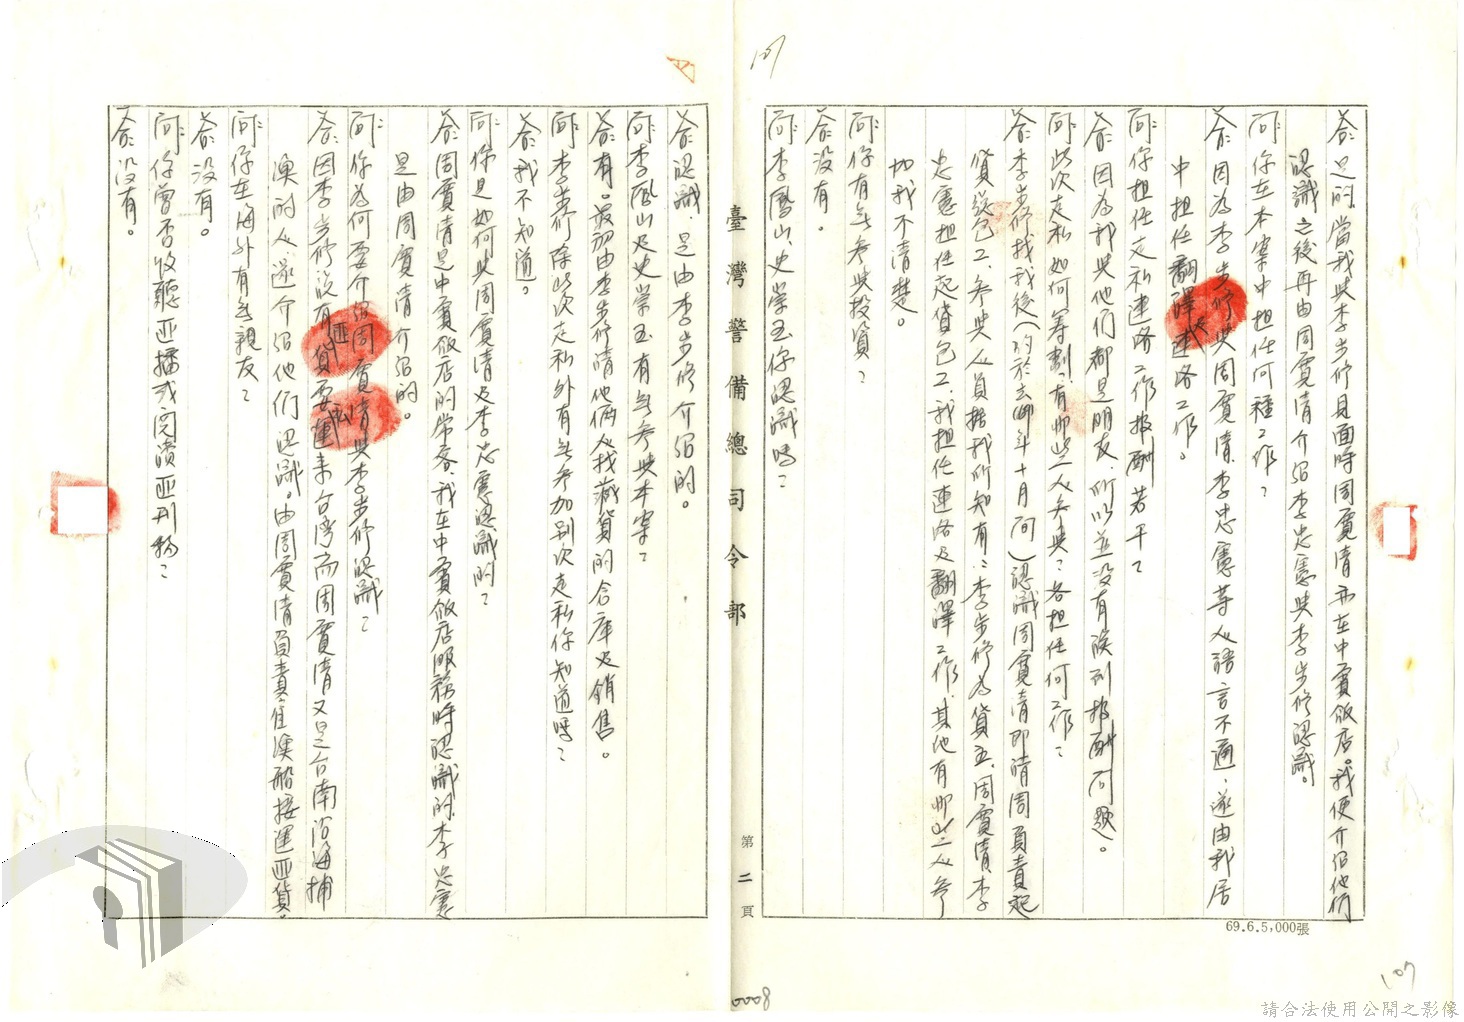 107
答:是的。當我與李步修見面時周寶清亦在中賓飯店。我便介紹他們
認識之後再由周寶清介紹李忠憲與李步修認識。
問:你在本案中担任何種工作?
答:因為李步修與周寶清、李忠憲等人語言不通,遂由我居
中担任翻譯及連絡工作。
問:你担任走私連絡工作報酬若干?
答:因為我與他們都是朋友,所以並沒有談到報酬問題。
問:此次走私如何籌劃?有哪些人參與?各担任何工作?
答:李步修找我後(約於去年十月間)認識周寶清即請周負責起
貨發包工、參與人員據我所知有:李步修為貨主、周寶清、李
忠憲担任起貨包工、我担任連絡及翻譯工作,其他有哪些人參
加我不清楚。
問:你有無參與投資?
答:沒有。
問:李鳳山、史崇玉你認識嗎?
69.6.5,000張
107
臺灣警備總司令部
第二頁
0008
答:認識,是由李步修介紹的。
問:李鳳山及史崇玉有無參與本案?
答:有。最初由李步修請他倆人找藏貨的倉庫及銷售。
問:李步修除此次走私外有無參加別次走私你知道嗎?
答:我不知道。
問:你是如何與周寶清及李忠憲認識的?
答:周寶清是中賓飯店的常客,我在中賓飯店服務時認識的,李忠憲
是由周寶清介紹的。
問:你為何要介紹周寶清與李步修認識?
答:因李步修說有匪貨要私運來台灣而周寶清又是台南沿海捕
漁的人,遂介紹他們認識。由周寶清負責雇漁船接運匪貨。
問:你在海外有無親友?
答:沒有。
問:你曾否收聽匪播或閱讀匪刊物?
答:沒有。
請合法使用公開之影像